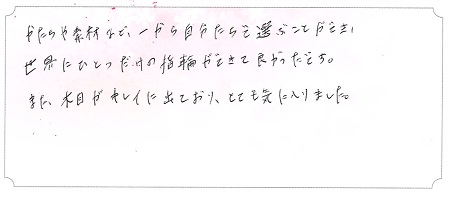 かたちや素材など、一から自分たちで選ぶことができ、
世界にひとつだけの指輪ができて良かったです。
また、木目がキレイに出ており、とても気に入りました。